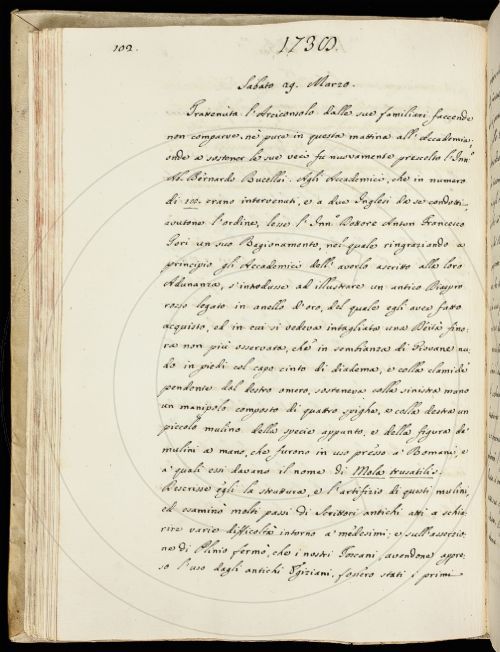 102.
1738.
Sabato 29. Marzo.
Trattenuta l'Arciconsolo dalle sue familiari faccende
non comparve nè pure in questa mattina all'Accademia;
onde a sostener le sue veci fu nuovamente prescelto l'Inn.º
Ab. Bernardo Bucellai. Agli Accademici, che in numero
di erano intervenuti, e a due Inglesi da se condotti,
avutone l'ordine, lesse l'Inn.º Dottore Anton Francesco
Gori un suo Ragionamento, nel quale ringraziando a
principio gli Accademici dell'averlo ascritto alla loro
Adunanza, s'introdusse ad illustrare un antico Diaspro
rosso legato in anello d'oro, del quale egli avea fatto
acquisto, ed in cui si vedeva intagliata una Deità fino-
ra non più osservata, che in sembianza di Giovane nu-
do in piedi col capo cinto di diadema, e colla clamide
pendente dal destro omero, sosteneva colla sinistra mano
un manipolo composto di quattro spighe, e colla destra un
piccolo mulino della specie appunto, e della figura de'
mulini a mano, che furono in uso presso a' Romani, e
a' quali essi davano il nome di Mola trusatilis.
Descrisse egli la struttura, e l'artifizio di questi mulini,
ed esaminò molti passi di Scrittori antichi atti a schia-
rire varie difficoltà intorno a' medesimi; e sull'asserzio-
ne di Plinio fermò, che i nostri Toscani avendone appre-
so l'uso dagli antichi Egiziani, fossero stati i primi